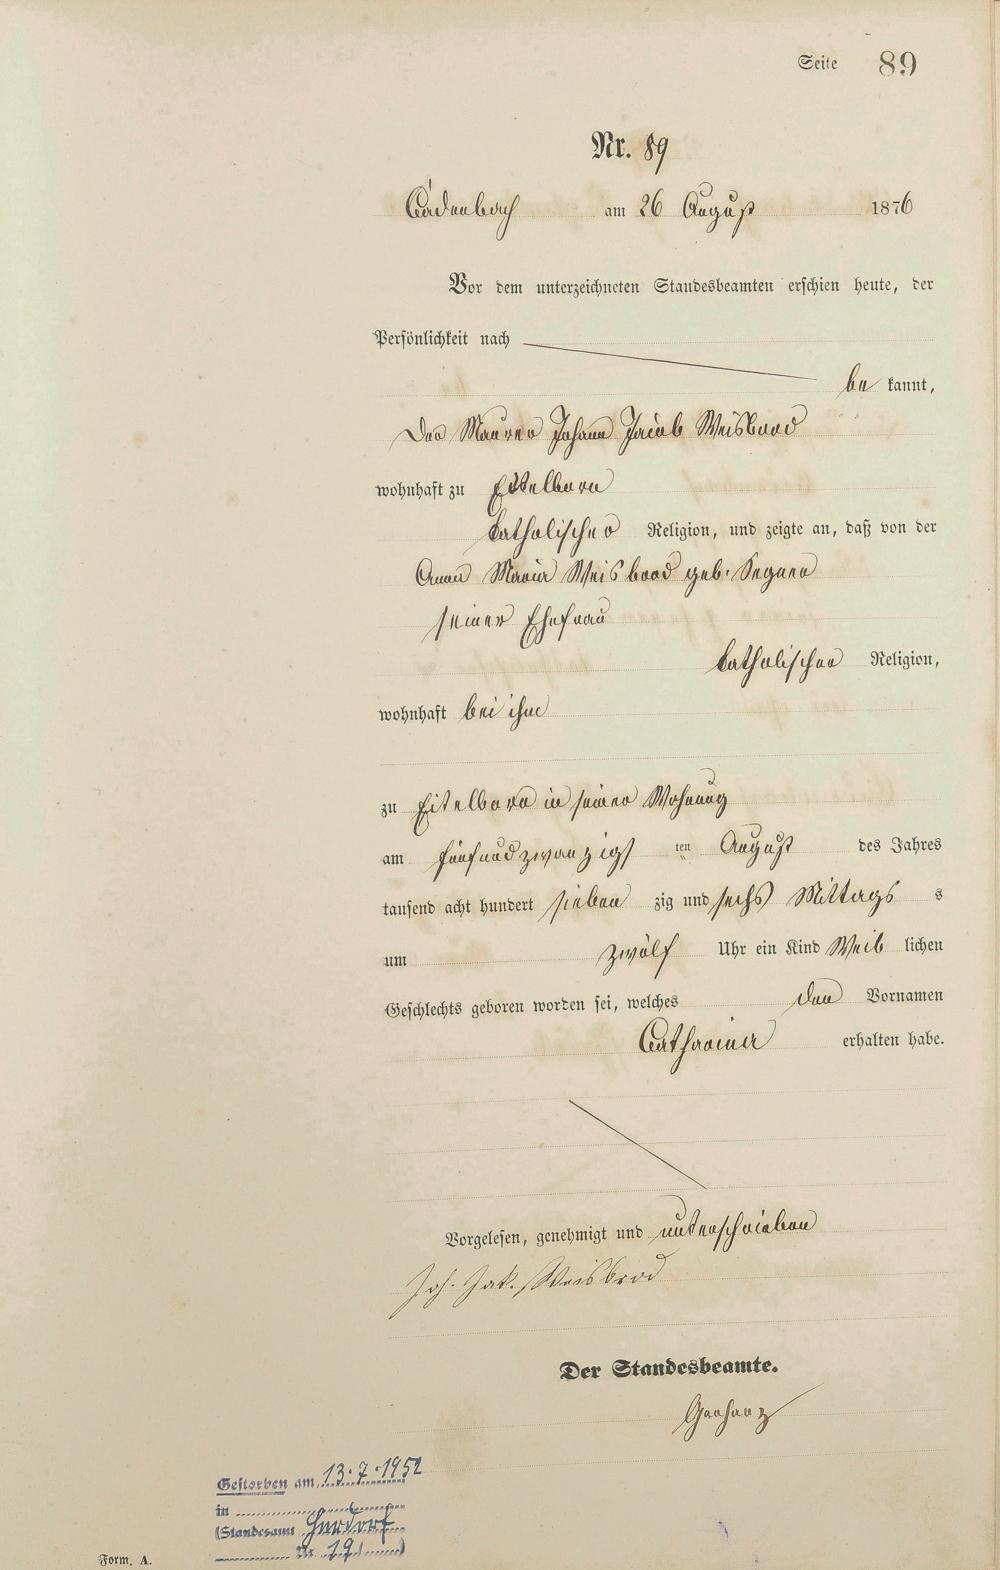 Seite 89
Nr. 89
Cadenbach am 26 August 1876
Vor dem unterzeichneten Standesbeamten erschien heute, der
Persönlichkeit nach
be kannt,
Der Maurer Johann Jacob Weisbrod
wohnhaft zu Eitelborn
katholischer Religion, und zeigte an, daß von der
Anna Maria Weisbrod geb. Segner
seiner Ehefrau
katholischer Religion,
wohnhaft bei ihm
zu Eitelborn in seiner Wohnung
am fünfundzwanzigs ten August des Jahres
tausend acht hundert sieben zig und sechs Mittags s
um zwölf Uhr ein Kind Weib lichen
Geschlechts geboren worden sei, welches den Vornamen
Catharina erhalten habe.
Vorgelesen, genehmigt und unterschrieben
Joh. Jak. Weisbrod
Der Standesbeamte.
Gestorben am 13.7.1952
in
(Standesamt
Nr. 19 )
Form. A.